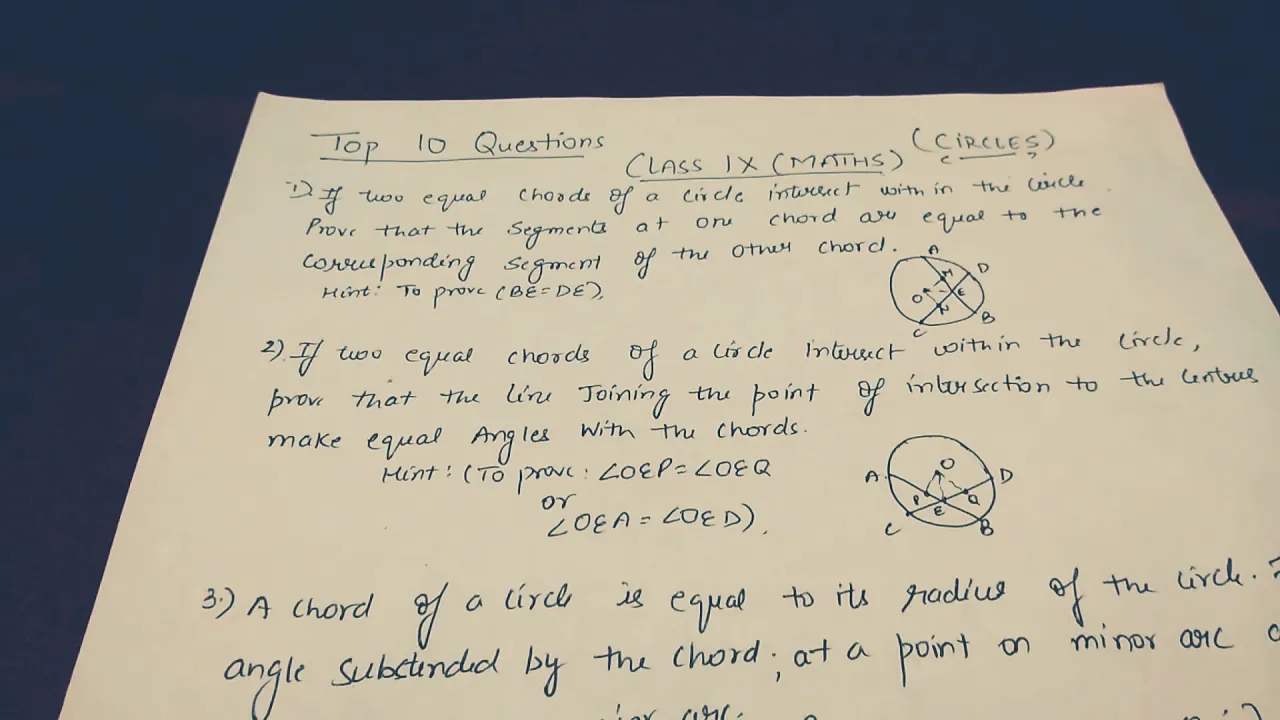 Top 10 Questions
CLASS IX (MATHS) (CIRCLES)
1) If two equal chords of a circle intersect with in the circle
Prove that the segments at one chord are equal to the
corresponding segment of the other chord.
Hint: To prove (BE=DE).
A
M
D
O
E
N
B
C
2) If two equal chords of a circle intersect within the circle,
prove that the line Joining the point of intersection to the centres
make equal Angles With the chords.
Hint: (To prove: ∠OEP=∠OEQ
or
∠OEA = ∠OED).
O
A
D
P
Q
E
C
B
3.) A chord of a circle is equal to its radius of the circle.
angle substended by the chord, at a point on minor arc
arc.